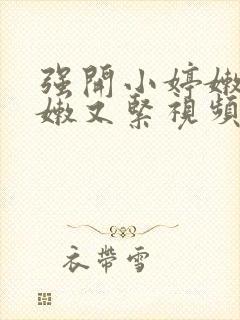 强開小婷嫩
嫩又緊視頻
衣帶雪